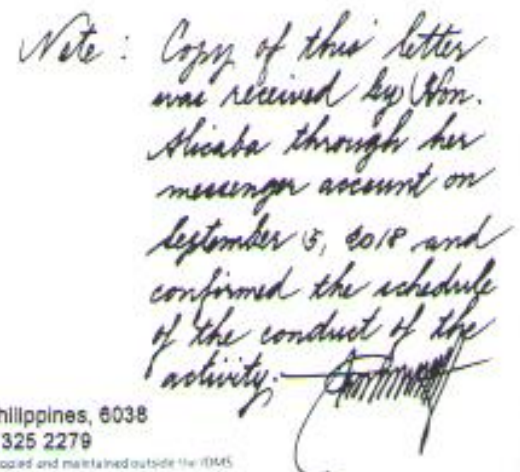 Note : Copy of this letter
was received by Hon.
Alicaba through her
messenger account on
September 5, 2018 and
confirmed the schedule
of the conduct of the
activity.
hilippines, 6038
325 2279
opied and maintained outside the IDMS